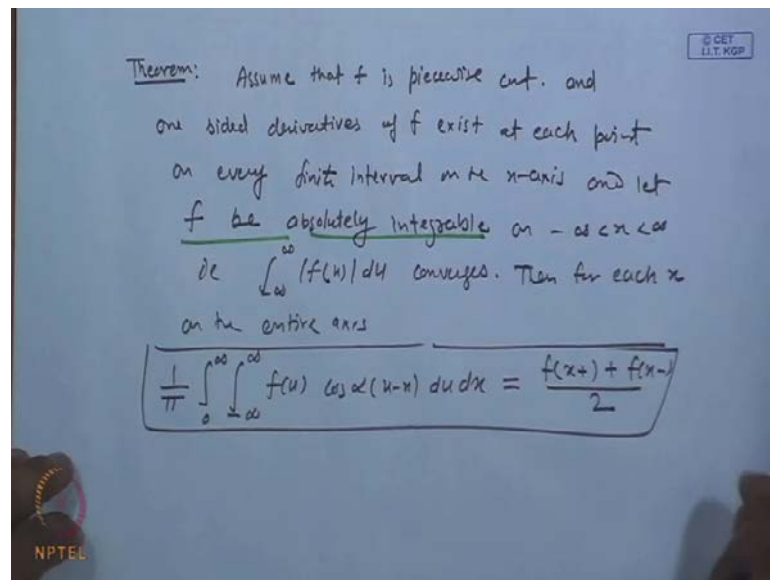 © CET
I.I.T. KGP
Theorem: Assume that f is piecewise cnt. and
one sided derivatives of f exist at each point
on every finite interval on the x-axis and let
f be absolutely integrable on -∞<x<∞
ie ∫_{-∞}^{∞} |f(u)| du converges. Then for each x
on the entire axis
1/π ∫_0^∞ ∫_{-∞}^{∞} f(u) cos α(u-x) du dx = (f(x+) + f(x-))/2
NPTEL